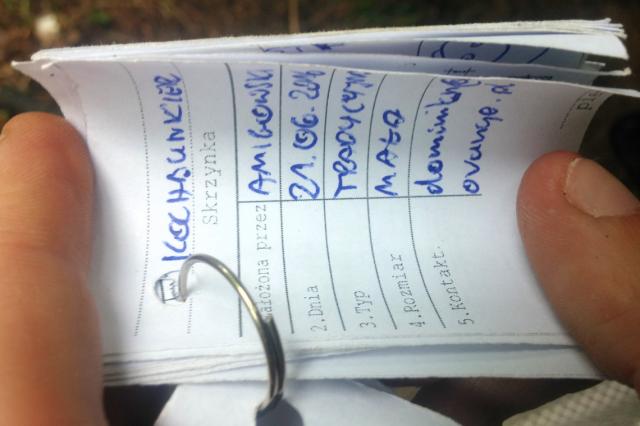 KOCHBUNKIER
Skrzynka
założona przez AMIGOWSKI
2.Dnia 21.06.201
3.Typ TRADYCYJN
4.Rozmiar MAŁA
5.Kontakt.
ovange.pl